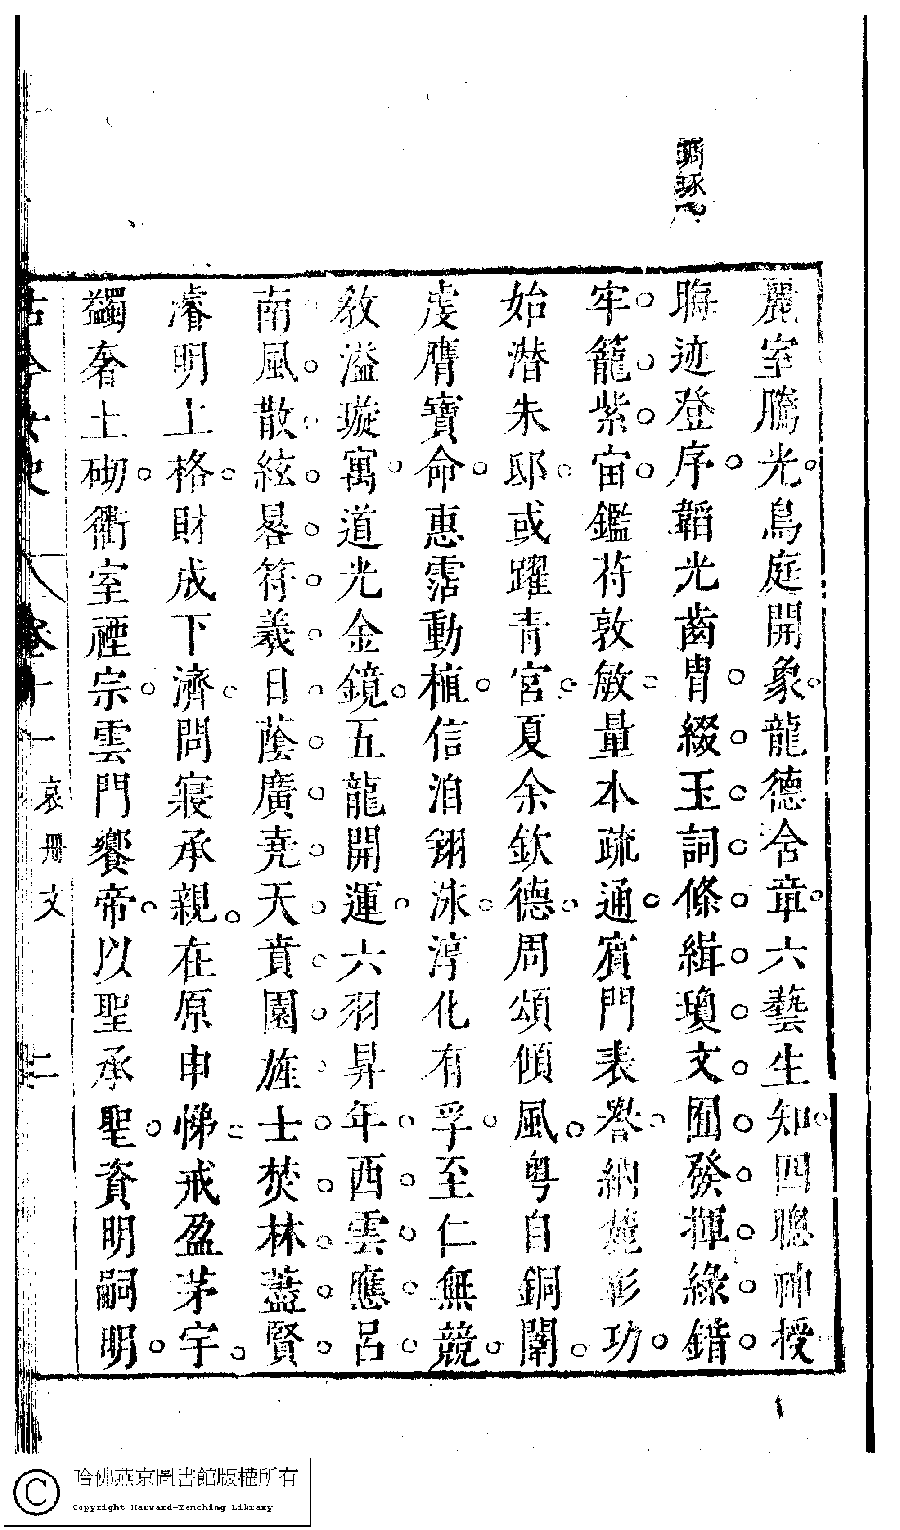 琢
麗室騰光鳥庭開象龍德含章六藝生知四聰神授
晦迹登序韜光齒胄綴玉詞條緝瓊文囿發揮綠錯
牢籠紫宙鑑苻敦敏量本疏通賓門表譽納麓彰功
始潛朱邸或躍青宮夏余欽德周頌傾風粤自銅闈
虔膺寶命惠霑動植信洎翔泳淳化有孚至仁無競
敎溢璇寓道光金鏡五龍開運六羽昇年西雲應呂
南風散絃晷符羲日蔭廣堯天賁園旌士焚林蓋賢
濬明上格財成下濟問寢承親在原申悌戒盈茅宇
蠲奢土砌衢室禋宗雲門饗帝以聖承聖資明嗣明
古今女史 卷十一 哀冊文 二
哈佛燕京圖書館版權所有
Copyright Harvard-Yenching Library